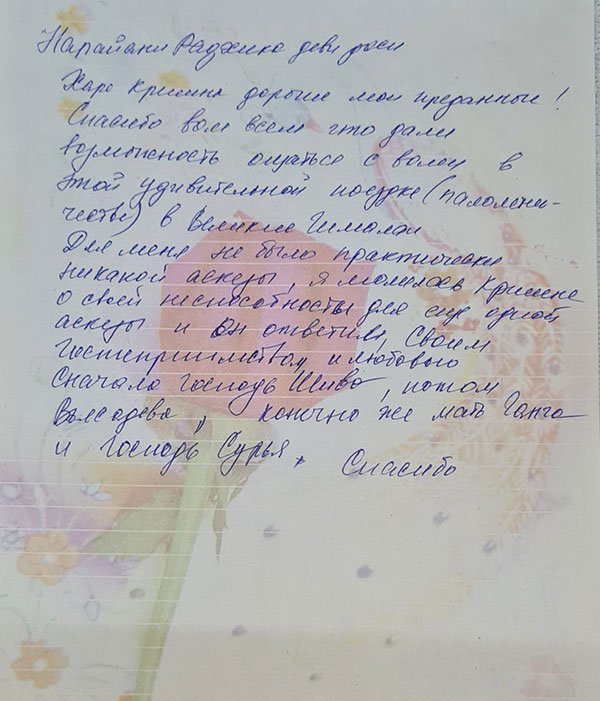 Нарайани Раджика деви даси
Харе Кришна дорогие мои преданные!
Спасибо вам всем что дали
возможность ощаться с вами в
этой удивительной поездке (паломни-
честве) в Великие Гималаи
Для меня не было практически
никакой аскезы, я молилась Кришне
о своей неспособности для еще одной
аскезы и Он ответил, Своим
Гостеприимством, и любовью
Сначала Господь Шива, потом
Баладева, конечно же мать Ганга
и Господь Сурья. Спасибо